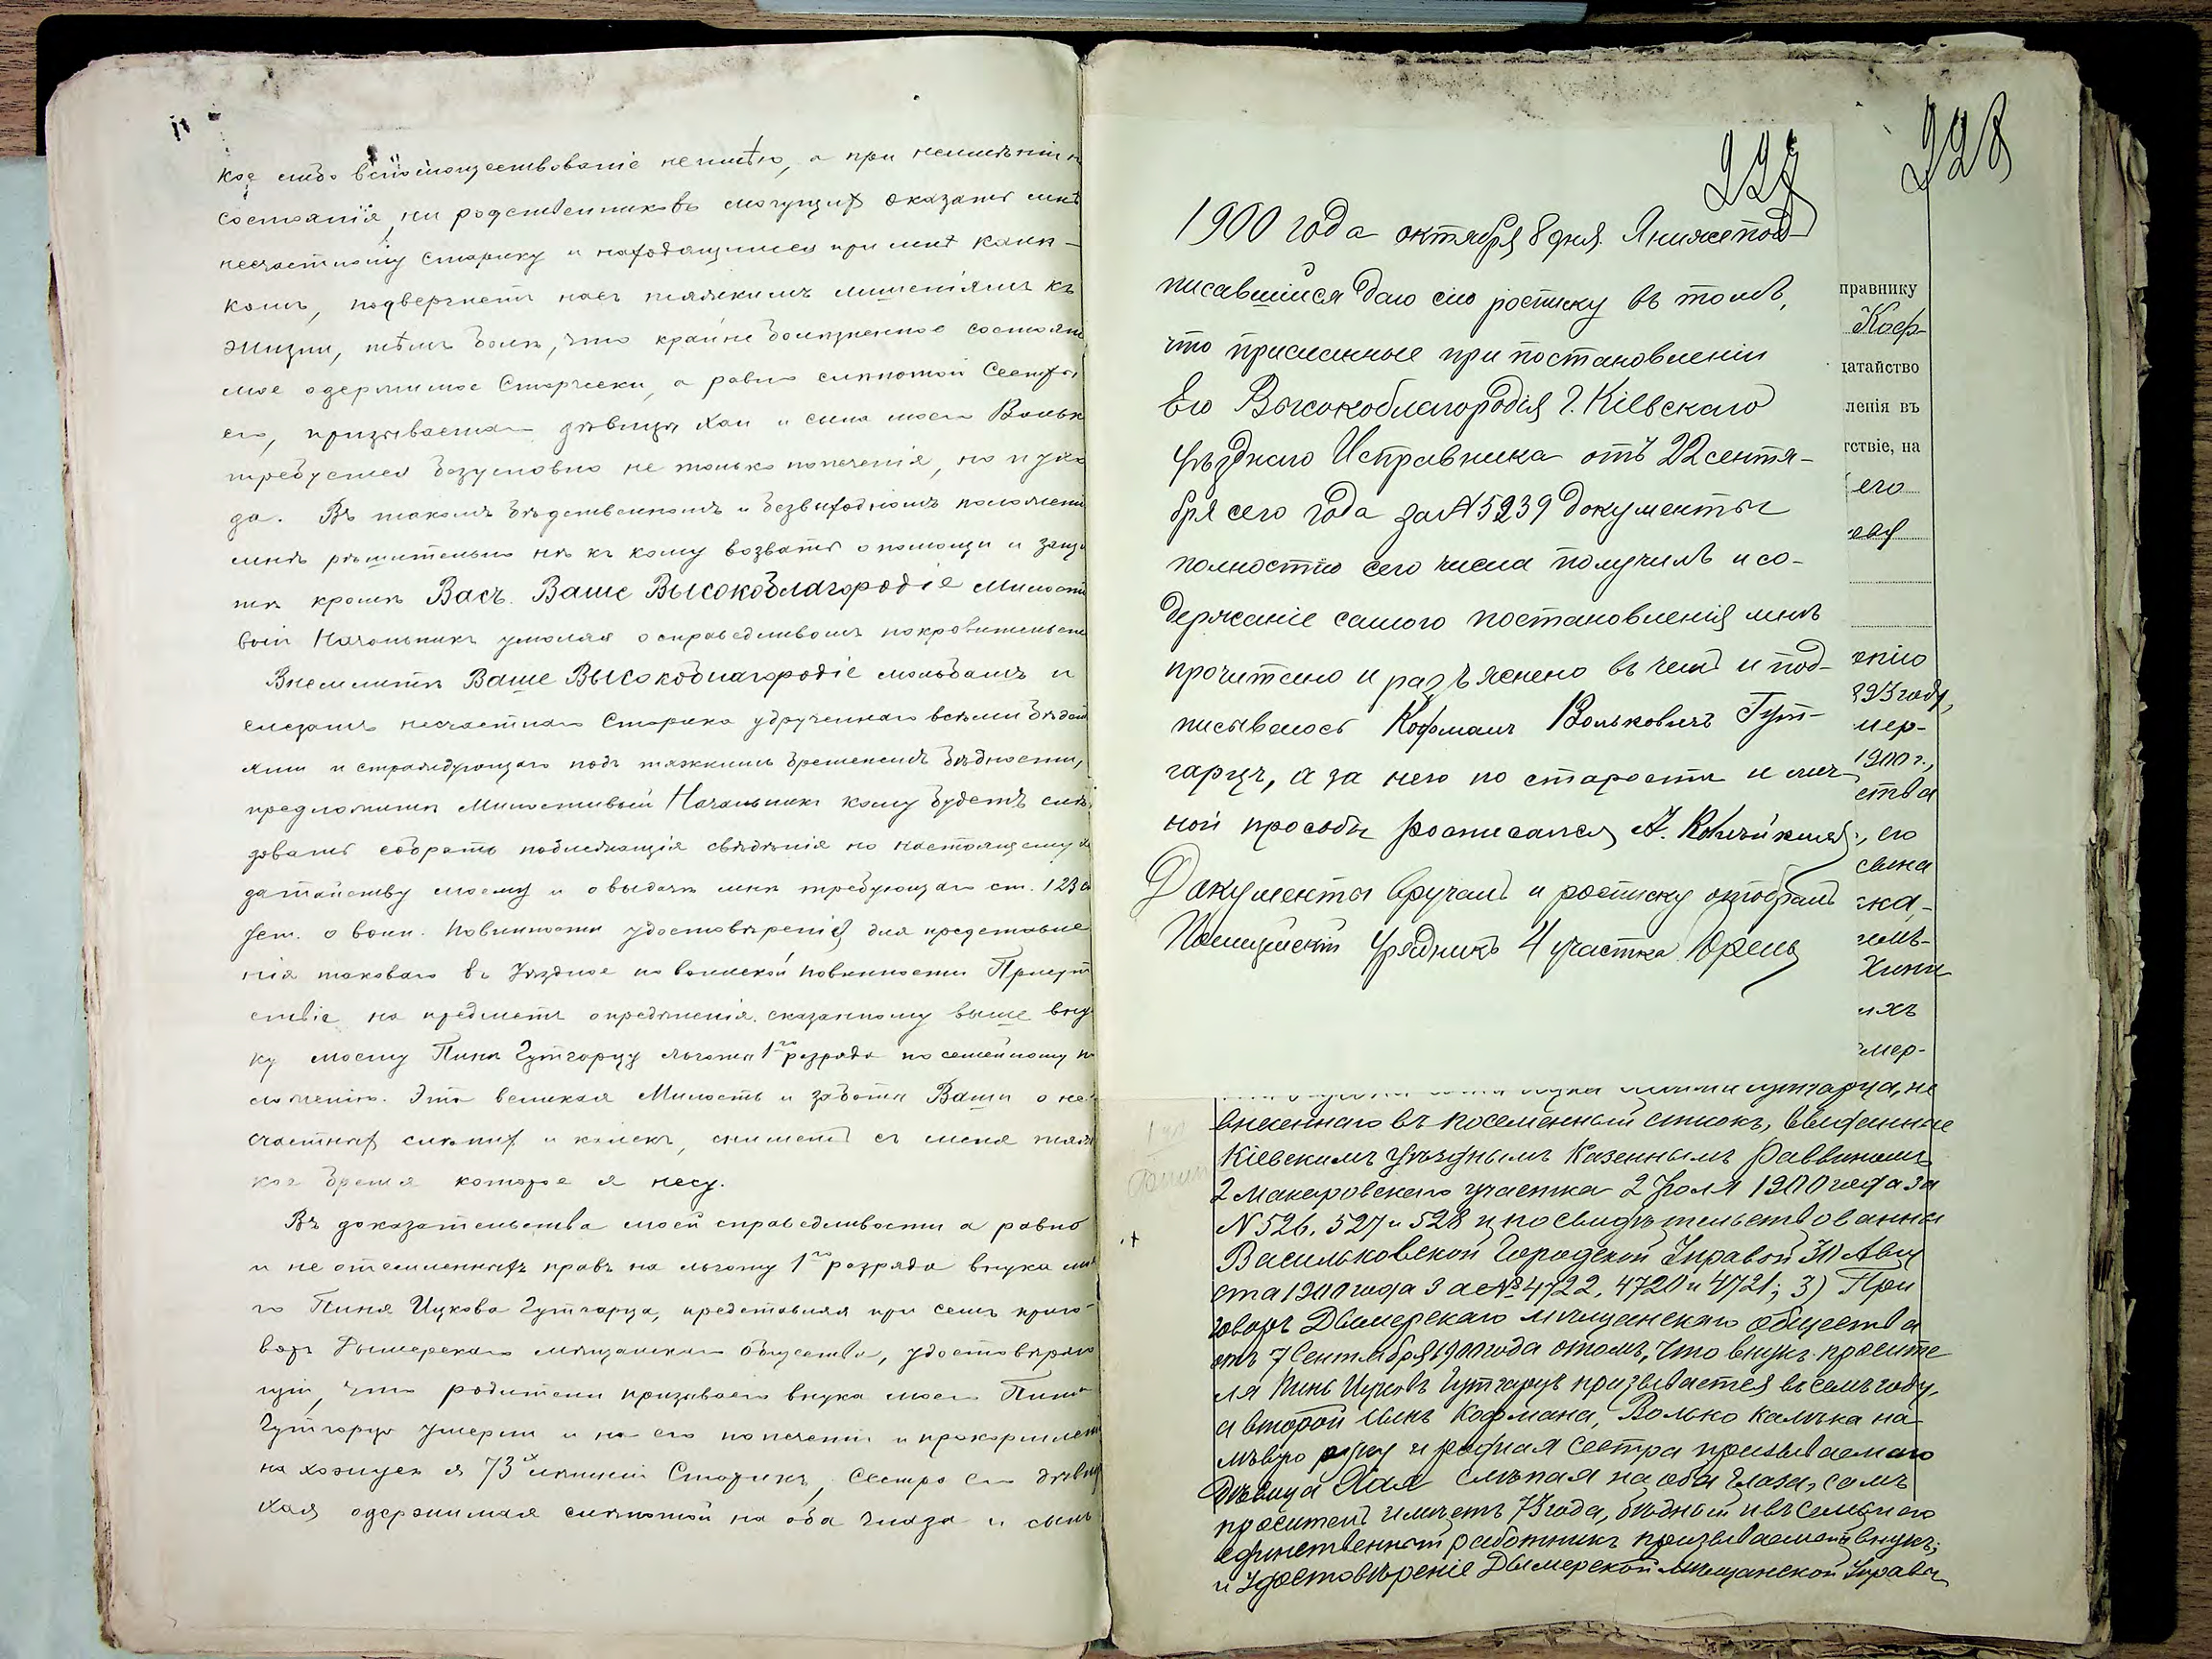 кое либо вспомоществованіе неимѣю, а при неимѣніи
состоянія, ни родственниковъ могущихъ оказать мнѣ
несчастному старику и находящимся при мнѣ калѣ-
комъ, подвергнетъ насъ тяжкимъ лишеніямъ къ
жизни, тѣмъ болѣе, что крайне болѣзненное состояні
мое одержимое Старчески, а равно слѣпотой Сестры
его, призываемаго дѣвицы Хаи и сына моего Вольк
требуется безусловно не только попеченія, но и ухо
да. Въ такомъ бѣдственномъ и безвыходномъ положені
мнѣ рѣшительно не къ кому возвать о помощи и защи
тѣ кромѣ Васъ. Ваше Высокоблагородіе Милости
вый Начальникъ умоляя о справедливомъ покровительст
Внемлите Ваше Высокоблагородіе мольбамъ и
слезамъ несчастнаго Старика удрученнаго всѣми бѣдст
ями и страждующаго подъ тяжкимъ бременемъ бѣдности,
предложите Милостивый Начальникъ кому будетъ слѣ
довать собрать подлежащія свѣдѣнія по настоящему хо
датайству моему и о выдачѣ мнѣ требующаго ст. 123
Уст. о воин. повинности удостовѣренія для представле
нія таковаго въ Уѣздное по воинской повинности Присут
ствіе на предметъ опредѣленія сказанному выше вну
ку моему Пинѣ Гутгарцу льготы 1го разряда по семейному по
ложенію. Эта великая Милость и забота Ваши о не
счастныхъ слѣпыхъ и калекъ, сниметъ съ меня тяж
кое бремя которое я несу.
Въ доказательства моей справедливости а равно
и не отъемленныхъ правъ на льготу 1го разряда внука мо
го Пиня Ицкова Гутгарца, представляя при семъ приго-
воръ Дымерскаго мѣщанскаго общества, удостовѣряю
щій, что родители призываемаго внука моего Пиня
Гутгарца умерли и на его попеченіи и прокормлені
находится я 73х лѣтній Старикъ, Сестра его дѣвица
Хая одержимая слѣпотой на оба глаза и сынъ
227
228
1900 года октября 8 дня. Я нижепод-
писавшійся даю сію росписку въ томъ,
что присланные при постановленіи
Его Высокоблагородія Г. Кіевскаго
Уѣзднаго Исправника отъ 22 сентя-
бря сего года за № 5239 документы
полностію сего числа получилъ и со-
держаніе самого постановленія мнѣ
прочитано и разъяснено въ чемъ и под-
писываюсь Кофманъ Вольковичъ Гут-
гарцъ, а за него по старости и лич-
ной просьбѣ росписался А.
Документы вручалъ и росписку отобралъ
Полицейскій Урядникъ 4 участка
правнику
Коф-
датайство
ленія въ
тствіе, на
его
енію
893 году,
мер-
1900 г.,
ства
, его
сына
ка,
Хини
ихъ
мер-
Гутгарца, не
внесеннаго въ посемейный списокъ, выданные
Кіевскимъ Уѣзднымъ Казеннымъ Раввиномъ
2 Макаровскаго участка 2 Іюля 1900 года за
№ 526, 527 и 528 и посвидѣтельствованны
Васильковской Городской Управой 30 Авгу
ста 1900 года за № 4722, 4720 и 4721; 3) При
говоръ Дымерскаго мѣщанскаго общества
отъ 7 Сентября 1900 года о томъ, что внукъ просите
ля Пинь Ицковъ Гутгарцъ призывается въ семъ году,
а второй сынъ Кофмана, Волько калѣка на
лѣвую руку и родная сестра призываемаго
дѣвица Хая слѣпая на оба глаза, самъ
проситель имѣетъ 73 года, бѣдный и въ семьѣ его
единственный работникъ призываемый внукъ;
и Удостовѣреніе Дымерской мѣщанской Управы